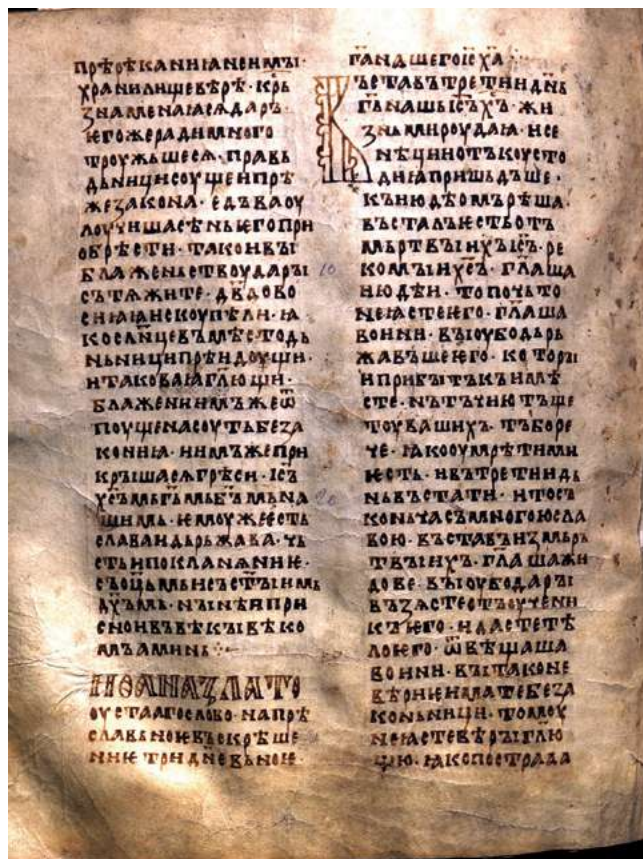 прѣрѣканиꙗ неимꙑ·
хранилище вѣрѣ· крь
знаменаꙗ сѧ даръ·
ѥгоже ради много
троужьшесѧ· правь
дьници соущеи прѣ
же закона· едъва оу
лоучишасѣньѥго при
обрѣсти· такои вꙑ
блаженьство удары
сътѧжите· дв҃дово
кослн҃цевъмѣстодь
ньници прѣидоущи·
и таковаꙗ гл҃ющи·
блажени имъже ѿ
поущенасоутьбеза
кониꙗ· иимъже при
крꙑшасѧ грѣси· іс҃ъ
щимь· ѥмоуже ѥсть
слава и дрьжава· чь
сть и поклан꙽ѧниѥ·
съ оц҃ьмь и съ ст҃ꙑимь
дх҃ъмь· нꙑнѣ и при
сно и въ вѣкꙑ вѣко
мъ аминь ⁘
ИѠАНА ЗЛАТО
оустааго слово· на прѣ
славьноѥ въскрѣше
ниѥ тридн҃евьноѥ·
га҃ нашего іс҃ х҃а
Въставъ третии дн҃ь
г҃ь нашь іс҃ъ х҃ъ· жи
знь мироу даꙗ· и се
нѣции отъ коусто
диꙗ пришьдъше·
къ июдѣомъ рѣша·
въсталъ ѥстьотъ
мьртвꙑихъ іс҃ъ· ре
комꙑи х҃съ· гл҃аша
июдѣи· то почьто
неꙗстеѥго· гл҃аша
воини· вꙑ оубо дьрь
жавъшеѥго· которꙑ
и прибꙑтъкъ имѣ
сте· нъ тъчию тъще
тоу вашихъ· тъ бо ре
че· ꙗко оумрѣти ми
ѥсть· и въ третии дь
нь въстати· и то съ
коньча съ многою сла
вою· въставъ из мьрь
твꙑихъ· гл҃аша жи
дове· вꙑ оубо дарꙑ
възѧсте отъ оучени
къ ѥго· и дасте тѣ
ло ѥго· ѿвѣщаша
воини· вꙑ таконе
вѣрнии имате беза
коньници· томоу
неꙗсте вѣрꙑ глю҃
щю· ꙗко пострада